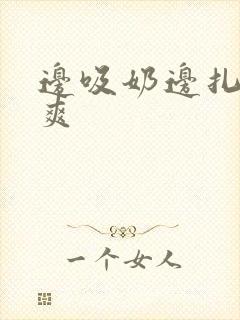 邊吸奶邊扎
爽
一个女人